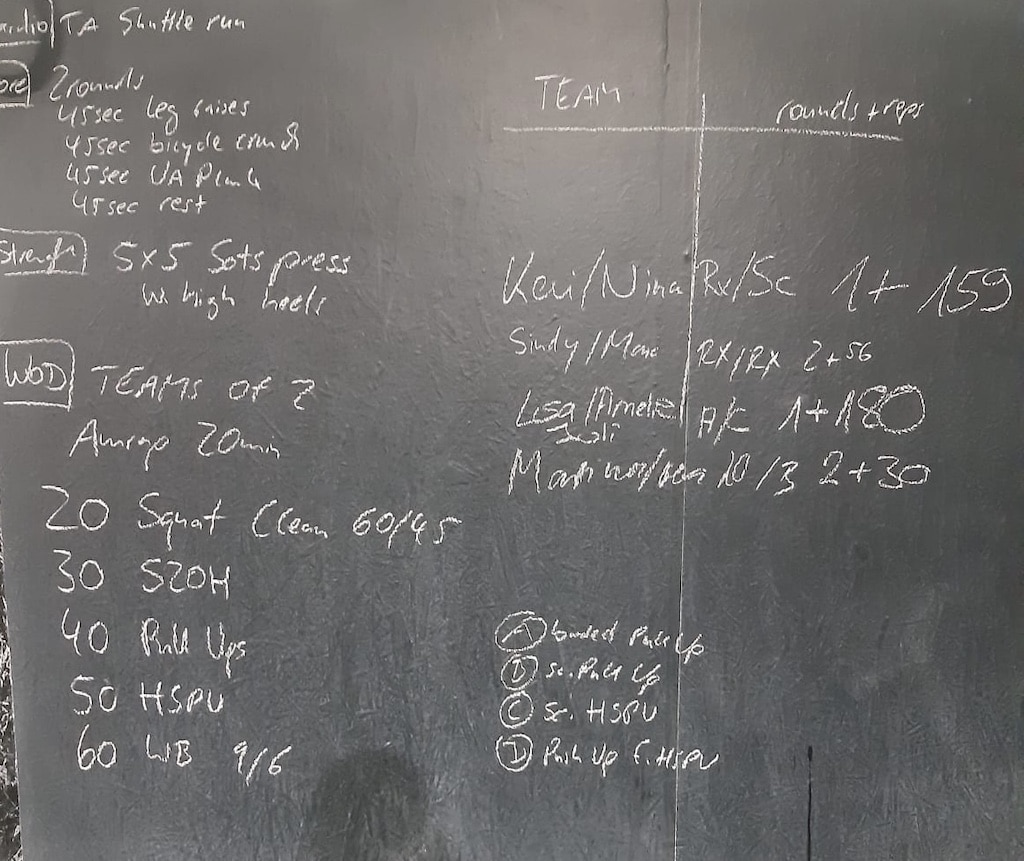 TA Shuttle run
2 rounds
45sec leg raises
45sec bicycle crunch
45sec UA Plank
45sec rest
Strength 5x5 Sots press
w. high heels
WOD TEAMS OF 2
Amrap 20min
20 Squat Clean 60/45
30 S2OH
40 Pull Ups
50 HSPU
60 WB 9/6
TEAM rounds + reps
Kevi/Nina Rx/Sc 1+159
Sindy/ RX/RX 2+56
Lisa/ A/C 1+180
Juli
2+30
A banded Pull Up
B Sc. Pull Up
C Sc. HSPU
D Push Up f. HSPU